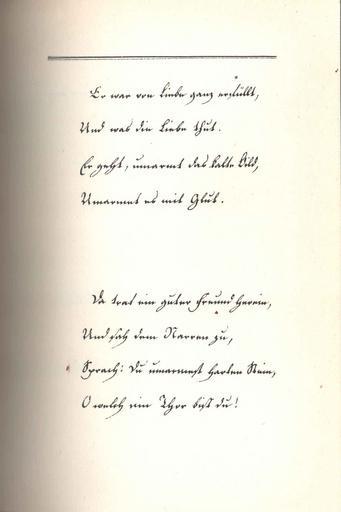 Er war von Liebe ganz erfüllt,
Und was die Liebe thut.
Er geht, umarmt das kalte Bild,
Umarmet es mit Glut.
Da trat ein guter Freund herein,
Und sah dem Narren zu,
Sprach: Du umarmest harten Stein,
O welch ein Thor bist du!